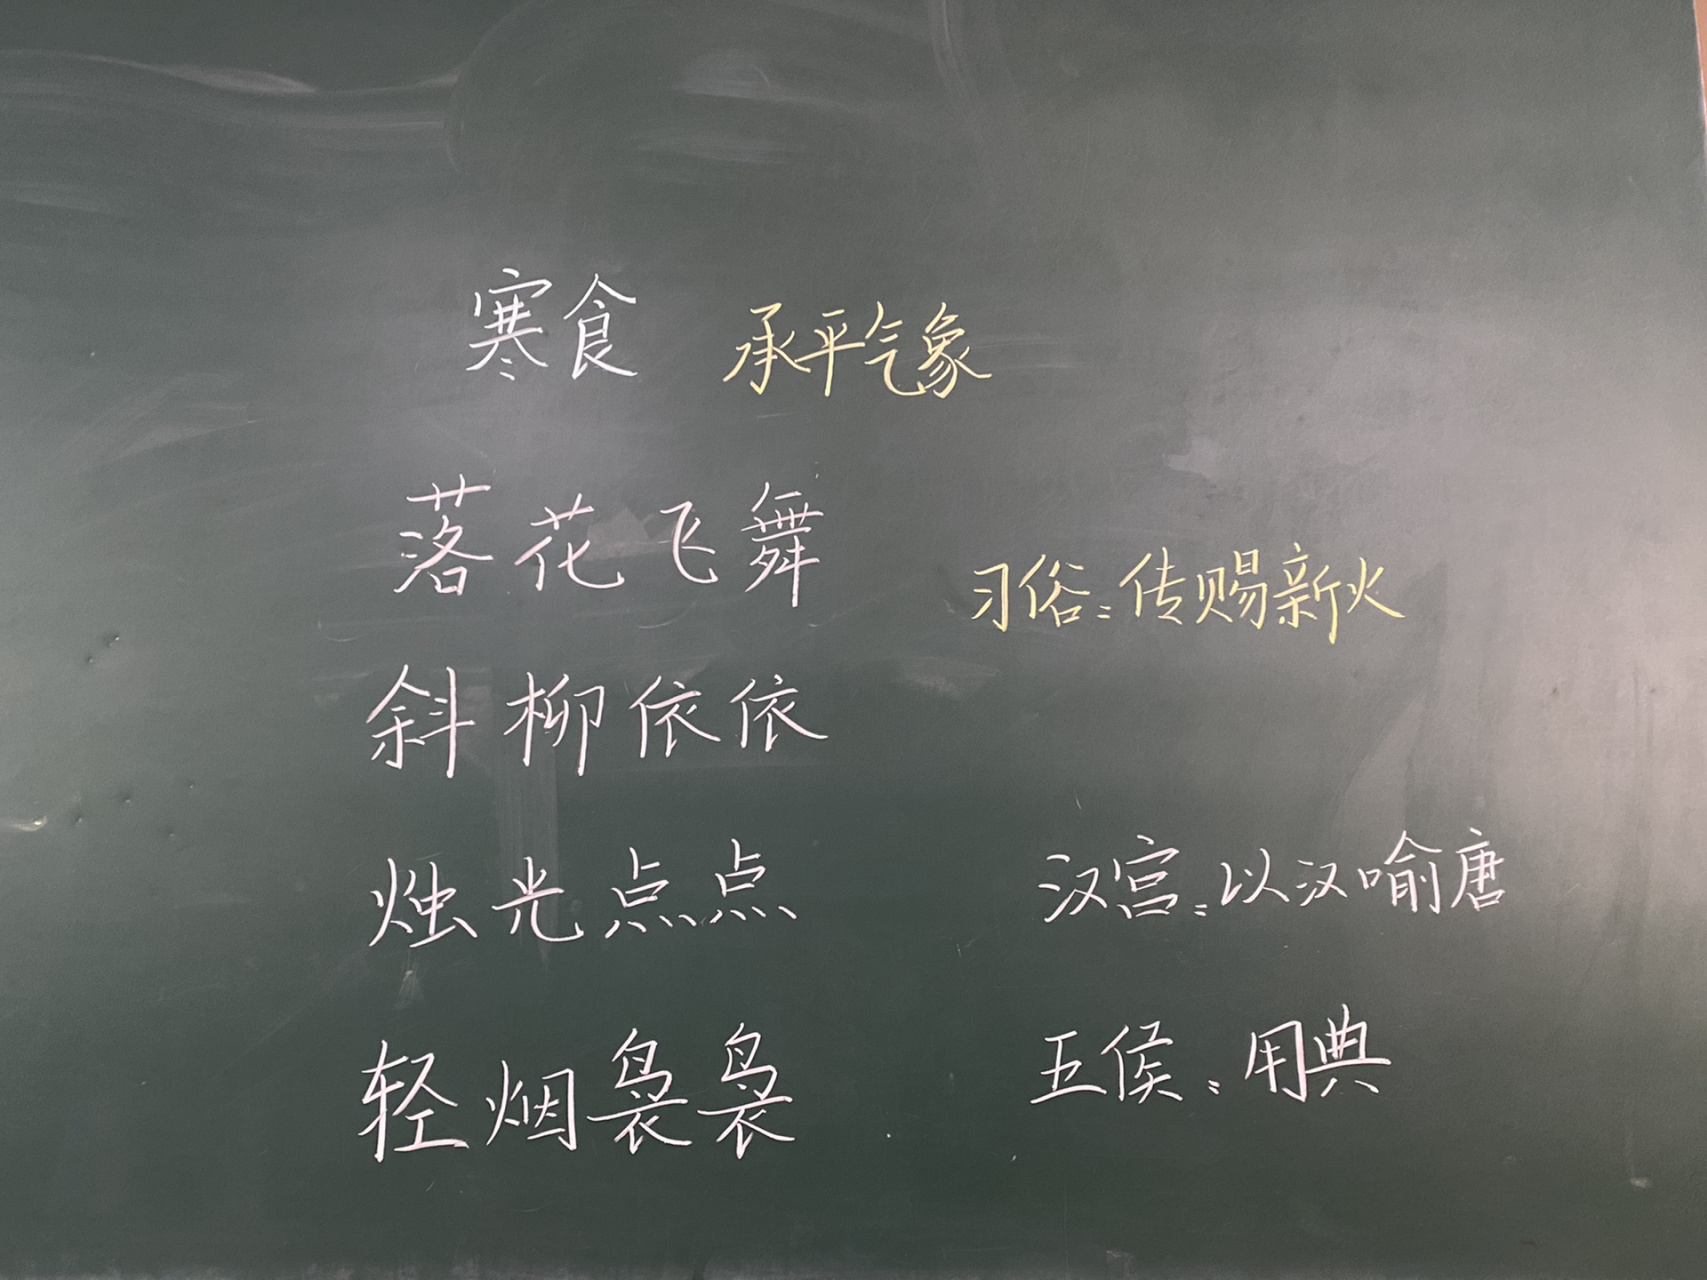 寒食 承平气象
落花飞舞
习俗：传赐新火
斜柳依依
烛光点点
汉宫：以汉喻唐
轻烟袅袅
五侯：用典